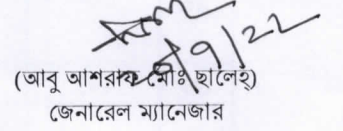 ৭/৯/২২
(আবু আশরাফ মোঃ ছালেহ্)
জেনারেল ম্যানেজার